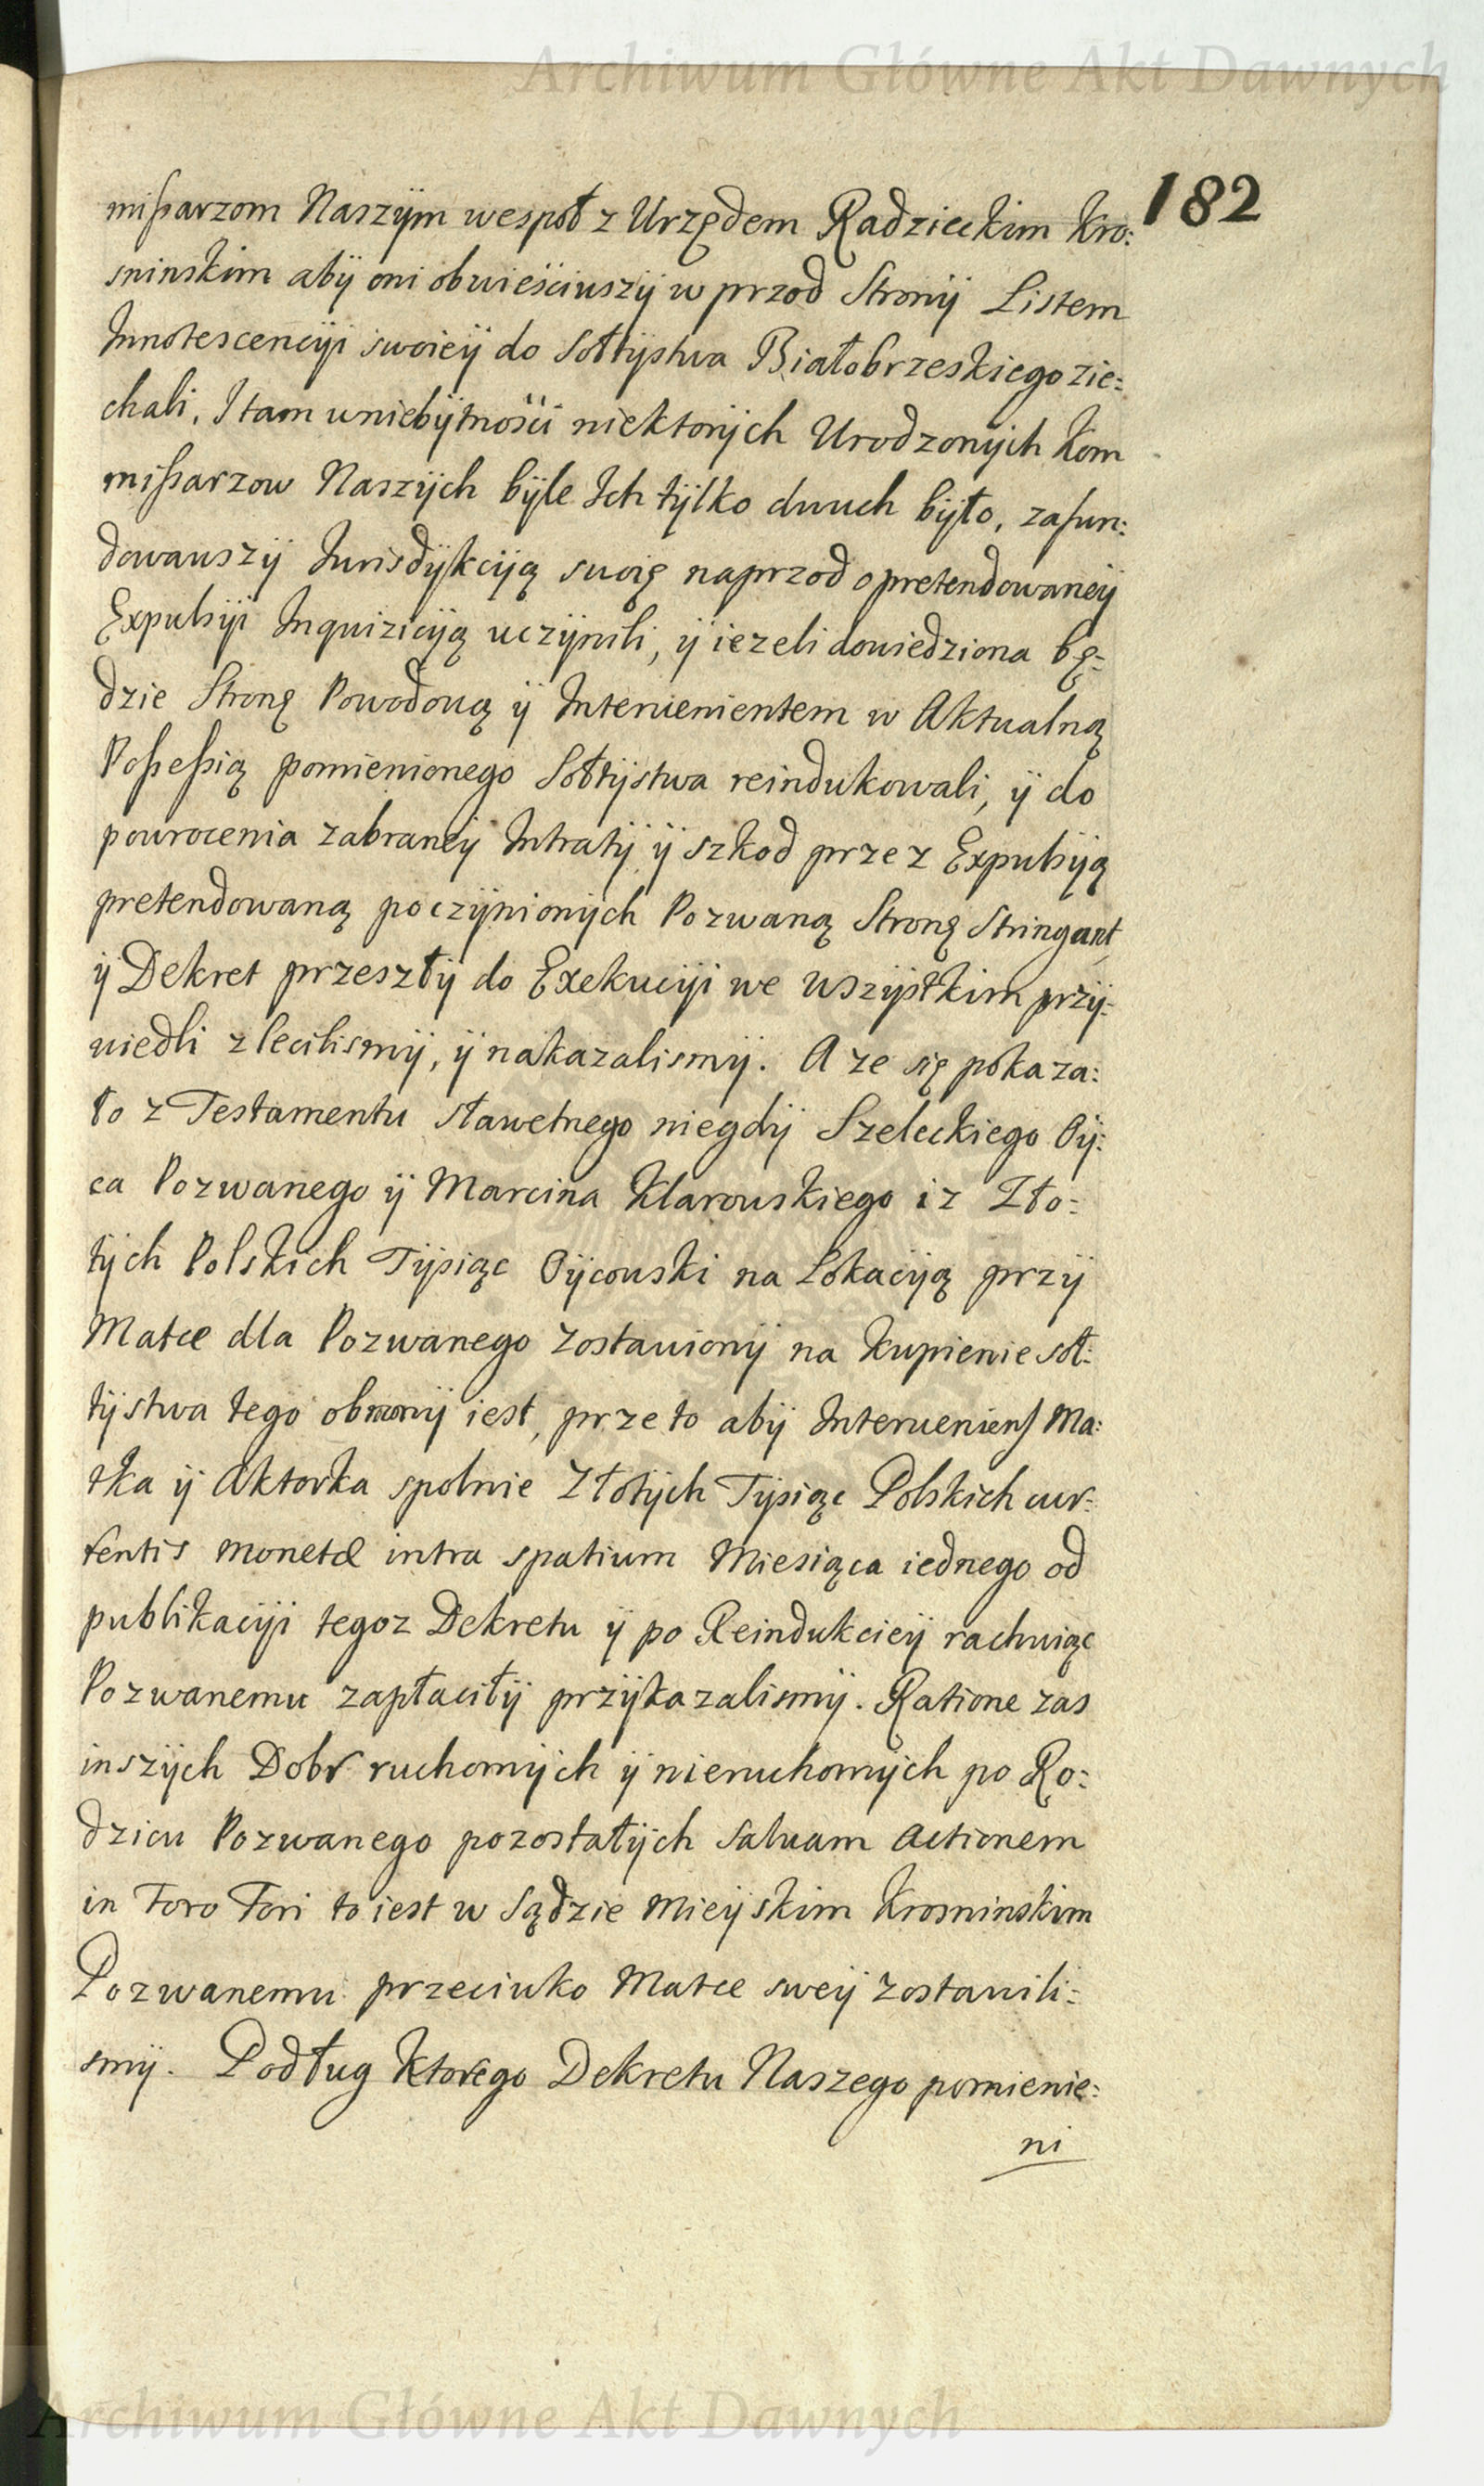 Archiwum Główne Akt Dawnych
182
mißarzom Naszÿm wespoł z Urzędem Radzieckim Kro:
sninskim abÿ oni obwieściwszÿ w przod Stronÿ Listem
Innotescencÿi swoieÿ do Sołtÿstwa Białobrzeskiego zie:
chali, I tam w niebÿtności niektorÿch Urodzonÿch Kom
mißarzow Naszÿch bÿle Ich tÿlko dwuch bÿło, zafun:
dowawszÿ Jurisdÿkcÿą swoię naprzod o pretendowaneÿ
Expulsÿi Inquizicÿą uczÿnili, ÿ iezeli dowiedziona bę:
dzie Stronę Powodową ÿ Interwenientem w Aktualną
Poßeßią pomienionego Sołtÿstwa reindukowali, ÿ do
powrocenia zabraneÿ Intratÿ ÿ szkod przez Expulsÿą
pretendowaną poczÿnionÿch Pozwaną Stronę Stringant,
ÿ Dekret przeszłÿ do Exekucÿi we wszÿstkim przÿ:
wiedli zlecilismÿ, ÿ nakazalismÿ. A ze się pokaza:
ło z Testamentu sławetnego niegdÿ Szeleckiego Oÿ:
ca Pozwanego ÿ Marcina Klarowskiego iz Zło:
tÿch Polskich Tÿsiąc Oÿcowski na Lokacÿą przÿ
Matce dla Pozwanego zostawionÿ na kupienie soł:
tÿstwa tego obroconÿ iest, przeto abÿ Interveniens Ma:
tka ÿ Aktorka spolnie Złotÿch Tÿsiąc Polskich cur:
rentis monetæ intra spatium Miesiąca iednego od
publikacÿi tegoz Dekretu ÿ po Reindukcieÿ rachuiąc
Pozwanemu zapłaciłÿ przÿkazalismÿ. Ratione zas
inszÿch Dobr ruchomÿch ÿ nieruchomÿch po Ro:
dzicu Pozwanego pozostałÿch salvam actionem
in Foro Fori to iest w Sądzie Mieÿskim Krosninskim
Pozwanemu przeciwko Matce sweÿ zostawili:
smÿ. Podług ktorego Dekretu Naszego pomienie:
ni
Archiwum Główne Akt Dawnych